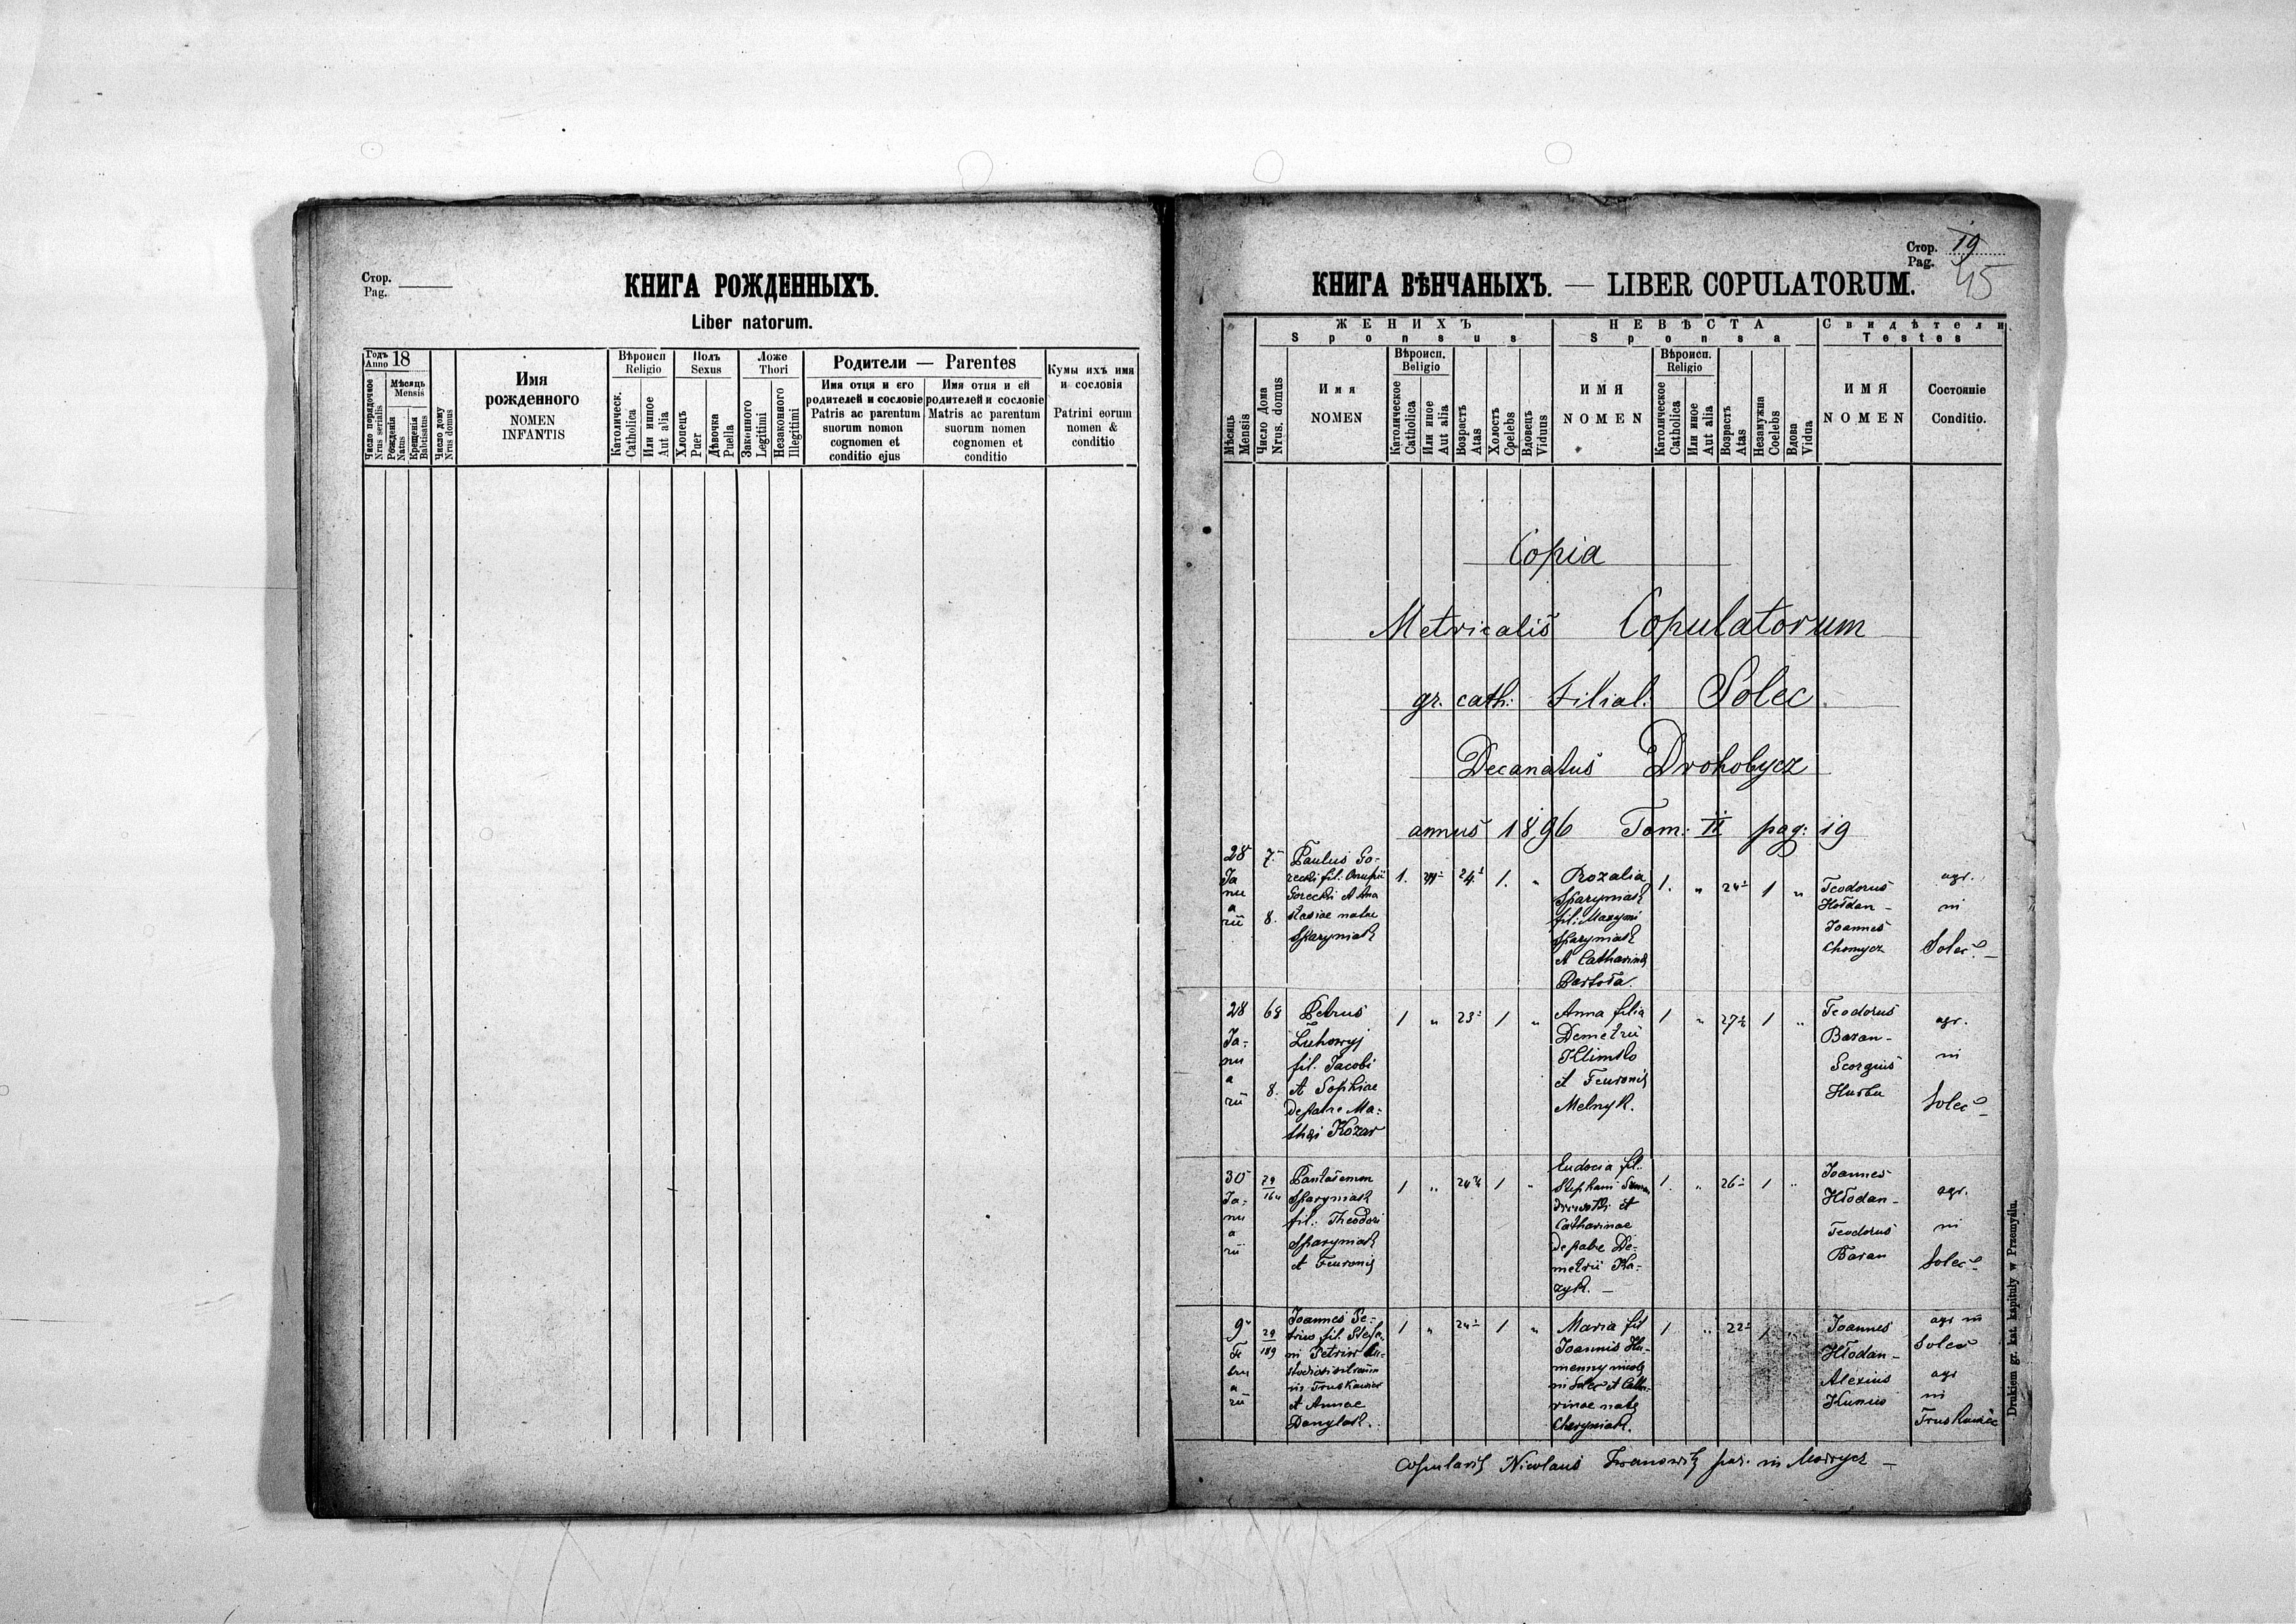 Стор.
Pag.
КНИГА РОЖДЕННЫХЪ.
Liber natorum.
Годъ
Anno 18
Число порядочное
Nrus serialis
Мѣсяць
Mensis
Рожденія
Natus
Крещенія
Babtisatus
Число дому
Nrus domus
Имя
рожденного
NOMEN
INFANTIS
Вѣроисп
Religio
Католическ.
Catholica
Или иное
Aut alia
Полъ
Sexus
Хлопецъ
Puer
Дѣвочка
Puella
Ложе
Thori
Законного
Legitimi
Незаконного
Illegitimi
Родители — Parentes
Имя отца и его
родителей и сословіе
Patris ac parentum
suorum nomon
cognomen et
conditio ejus
Имя отца и ей
родителей и сословіе
Matris ac parentum
suorum nomen
cognomen et
conditio
Кумы ихъ имя
и сословія
Patrini eorum
nomen &
conditio
Стор. 19
Pag. 45
КНИГА ВѢНЧАНЫХЪ. — LIBER COPULATORUM.
Мѣсяць
Mensis
Число Дома
Nrus. domus
ЖЕНИХЪ
Sponsus
Имя
NOMEN
Вѣроисп.
Beligio
Католическое
Catholica
Или иное
Aut alia
Возрастъ
Atas
Холостъ
Cpelebs
Вдовецъ
Viduus
НЕВѢСТА
Sponsa
ИМЯ
NOMEN
Вѣроисп.
Religio
Католическое
Catholica
Или иное
Aut alia
Возрастъ
Atas
Незамужна
Coelebs
Вдова
Vidua
Свидѣтели
Testes
ИМЯ
NOMEN
Состояніе
Conditio.
Copia
Metricalis Copulatorum
gr. cath: Filial: Solec
Decanatus Drohobycz
annus 1896 Tom: II pag: 19
28
Ja
nu
a
rii
7.
8.
Paulus Go-
recki fil. Onufrii
Gorecki et Ana
stasiae natae
Sparyniak
1. " 24 1. "
Rozalia
Sparyniak
fil: Maxymi
Sparyniak
et Catharinę
Bartoła.
1. " 24 1 "
Teodorus
Hłodan -
Joannes
Chomycz
agr.
in
Solec. -
28
Ja-
nu
a
rii
68
8.
Petrus
Łuhowyj
fil. Jacobi
et Sophiae
de patre Ma-
thęi Kozar
1 " 23 1 "
Anna filia
Demetrii
Klimko
et Feuronię
Melnyk.
1 " 27 1 "
Teodorus
Baran -
Georgius
agr.
in
Solec -
30
Ja-
nu
a
rii
79
164
Pantałemon
Sparyniak
fil: Theodori
Sparyniak
et Feuronię
1 " 24 1 "
Eudocia fil.
Stephani
et
Catharinae
de patre De-
metrii Ka-
zyk. -
1. " 26 1 "
Joannes
Hłodan -
Teodorus
Baran
agr.
in
Solec -
9
Fe
bru
a
rii
29
189
Joannes Pe-
triw fil. Stefa
ni Petriw
in Truskawiec
et Annae
Danylak.
1 " 24 1 "
Maria fil
Joannis Hu-
menny
in Solec et Catha-
rinae natę
1 " 22 1 "
Joannes
Hłodan -
Alexius
Kunio
agr in
Solec
agr
in
Truskawiec
Copulavit Nicolaus Iwanowicz par. in Modrycz -
Drukiem gr. kat. kapituły w Przemyślu.